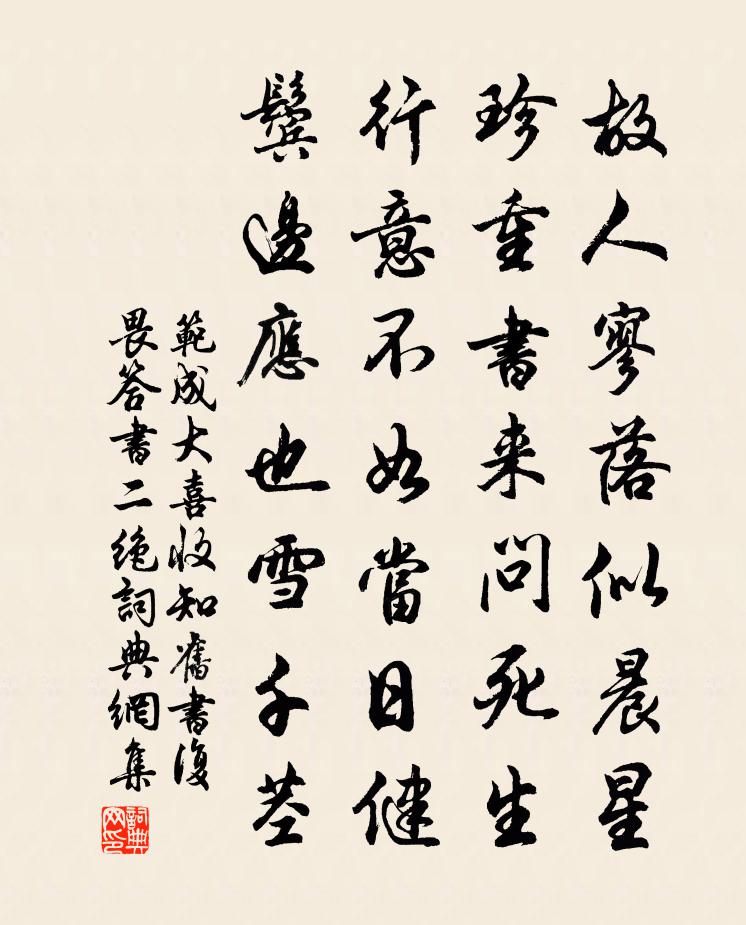 故人寥落似晨星
珍重書来問死生
行意不如當日健
鬓邊應也雪千莖
範成大喜收知舊書復
畏答書二絶詞典網集
詞典
网印